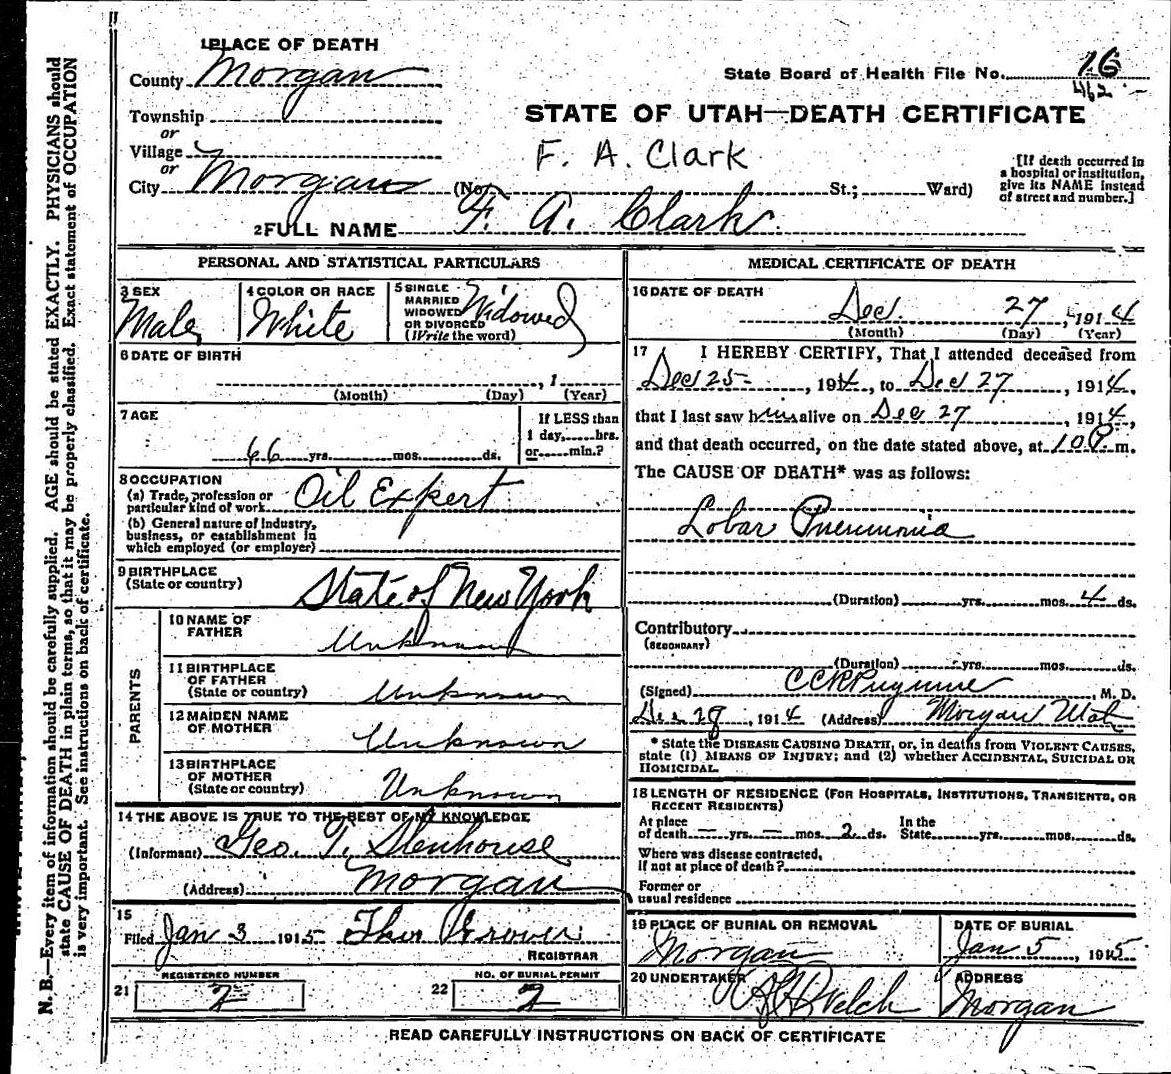 1 PLACE OF DEATH
County Morgan
State Board of Health File No. 16
462
Township
or
Village
or
City Morgan (No. St.; Ward)
STATE OF UTAH—DEATH CERTIFICATE
F. A. Clark
[If death occurred in
a hospital or institution,
give its NAME instead
of street and number.]
2 FULL NAME F. A. Clark
PERSONAL AND STATISTICAL PARTICULARS
3 SEX
Male
4 COLOR OR RACE
White
5 SINGLE
MARRIED
WIDOWED
OR DIVORCED
(Write the word)
Widowed
6 DATE OF BIRTH
, 1
(Month) (Day) (Year)
7 AGE
66 yrs. mos. ds.
If LESS than
1 day, hrs.
or min.?
8 OCCUPATION
(a) Trade, profession or
particular kind of work Oil Expert
(b) General nature of industry,
business, or establishment in
which employed (or employer)
9 BIRTHPLACE
(State or country) State of New York
PARENTS
10 NAME OF
FATHER Unknown
11 BIRTHPLACE
OF FATHER
(State or country) Unknown
12 MAIDEN NAME
OF MOTHER Unknown
13 BIRTHPLACE
OF MOTHER
(State or country) Unknown
14 THE ABOVE IS TRUE TO THE BEST OF MY KNOWLEDGE
(Informant) Geo. T. Stenhouse
(Address) Morgan
15
Filed Jan 3 1915
REGISTRAR
REGISTERED NUMBER
21 2
NO. OF BURIAL PERMIT
22 2
MEDICAL CERTIFICATE OF DEATH
16 DATE OF DEATH
Dec. 27, 1914
(Month) (Day) (Year)
17 I HEREBY CERTIFY, That I attended deceased from
Dec 25, 1914, to Dec 27, 1914,
that I last saw him alive on Dec 27, 1914,
and that death occurred, on the date stated above, at 10 P. m.
The CAUSE OF DEATH* was as follows:
Lobar Pneumonia
(Duration) yrs. mos. 4 ds.
Contributory
(SECONDARY)
(Duration) yrs. mos. ds.
(Signed) , M. D.
Dec 28, 1914 (Address) Morgan Utah
* State the DISEASE CAUSING DEATH, or, in deaths from VIOLENT CAUSES,
state (1) MEANS OF INJURY; and (2) whether ACCIDENTAL, SUICIDAL OR
HOMICIDAL.
18 LENGTH OF RESIDENCE (FOR HOSPITALS, INSTITUTIONS, TRANSIENTS, OR
RECENT RESIDENTS)
At place
of death — yrs. — mos. 2 ds.
In the
State yrs. mos. ds.
Where was disease contracted,
if not at place of death?
Former or
usual residence
19 PLACE OF BURIAL OR REMOVAL
Morgan
DATE OF BURIAL
Jan 5, 1915
20 UNDERTAKER
Welch
ADDRESS
Morgan
READ CAREFULLY INSTRUCTIONS ON BACK OF CERTIFICATE
N. B.—Every item of information should be carefully supplied. AGE should be stated EXACTLY. PHYSICIANS should
state CAUSE OF DEATH in plain terms, so that it may be properly classified. Exact statement of OCCUPATION
is very important. See instructions on back of certificate.